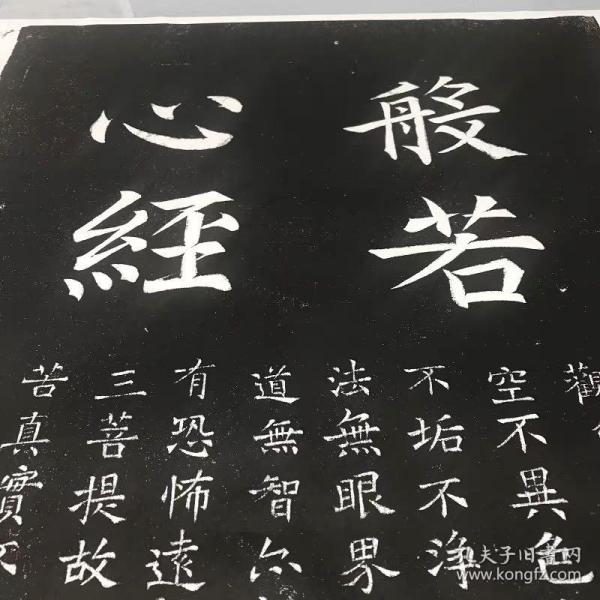 般若
心經
觀
空不異色
不垢不淨
法無眼界
道無智亦
有恐怖遠
三菩提故
苦真實不
孔夫子旧书网
www.kongfz.com